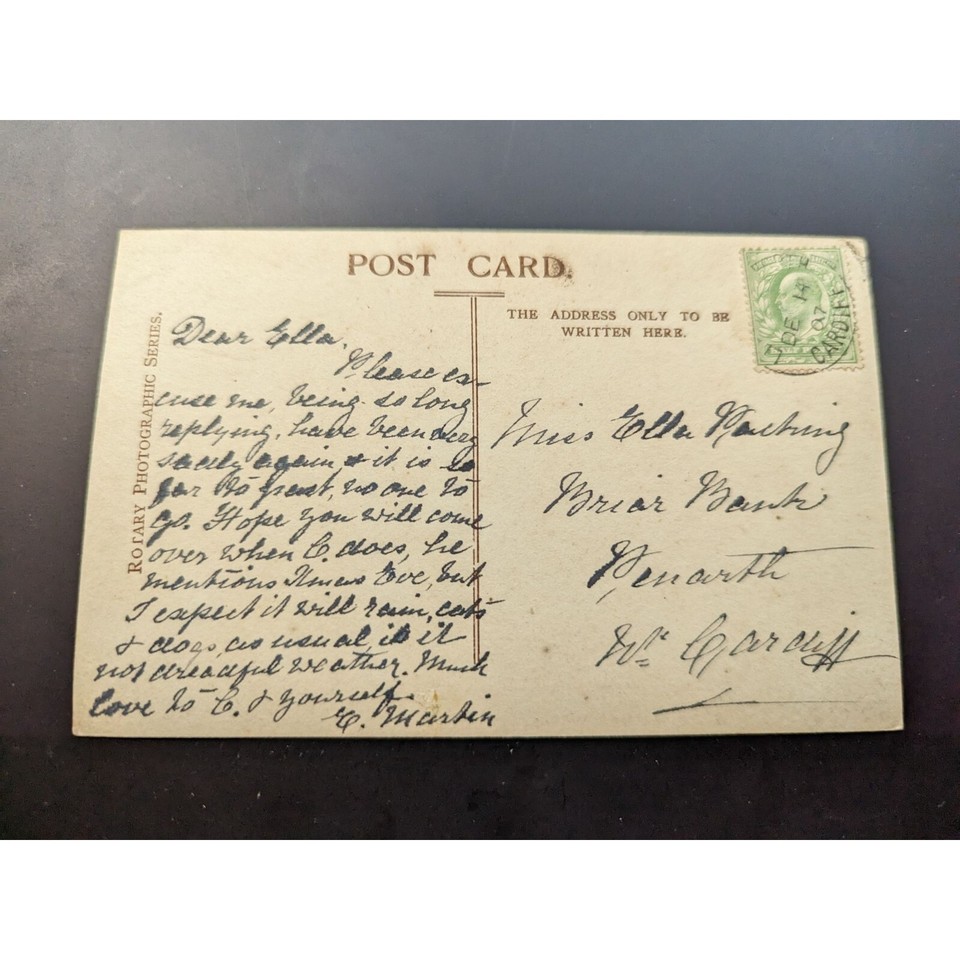 POST CARD.
ROTARY PHOTOGRAPHIC SERIES.
THE ADDRESS ONLY TO BE
WRITTEN HERE.
DE 14
07
CARDIFF
Dear Ella,
Please ex-
cuse me, being so long
replying, have been very
again, & it is so
far to post, no one to
go. Hope you will come
over when C. does, he
mentions Xmas Eve, but
I expect it will rain, cats
& dogs, as usual, is it
not dreadful weather. Much
love to C. & yourself.
E. Martin
Miss Ella
Briar Bank
Penarth
Nr Cardiff